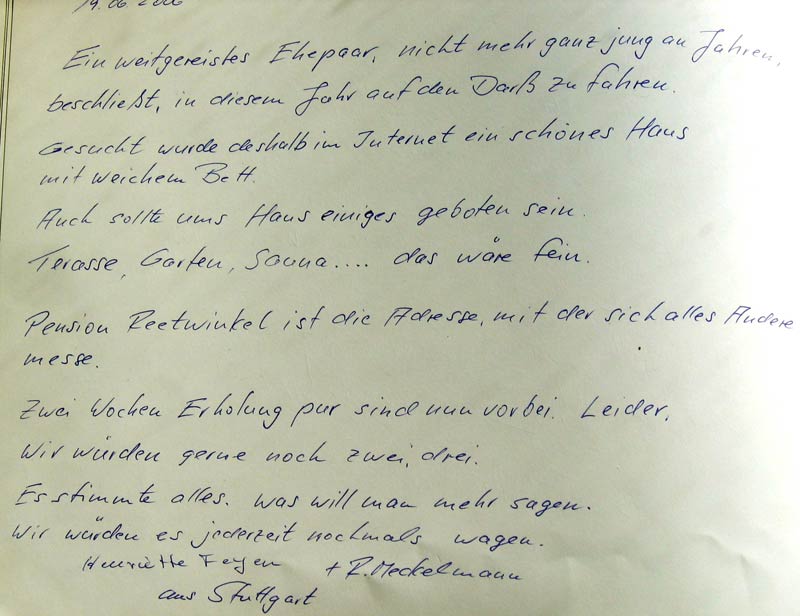 19.06.2006
Ein weitgereistes Ehepaar, nicht mehr ganz jung an Jahren,
beschließt, in diesem Jahr auf den Darß zu fahren.
Gesucht wurde deshalb im Internet ein schönes Haus
mit weichem Bett.
Auch sollte ums Haus einiges geboten sein.
Terasse, Garten, Sauna.... das wäre fein.
Pension Reetwinkel ist die Adresse, mit der sich alles Andere
messe.
Zwei Wochen Erholung pur sind nun vorbei. Leider.
Wir würden gerne noch zwei, drei.
Es stimmte alles. Was will man mehr sagen.
Wir würden es jederzeit nochmals wagen.
Henriette Feyen + R. Meckelmann
aus Stuttgart